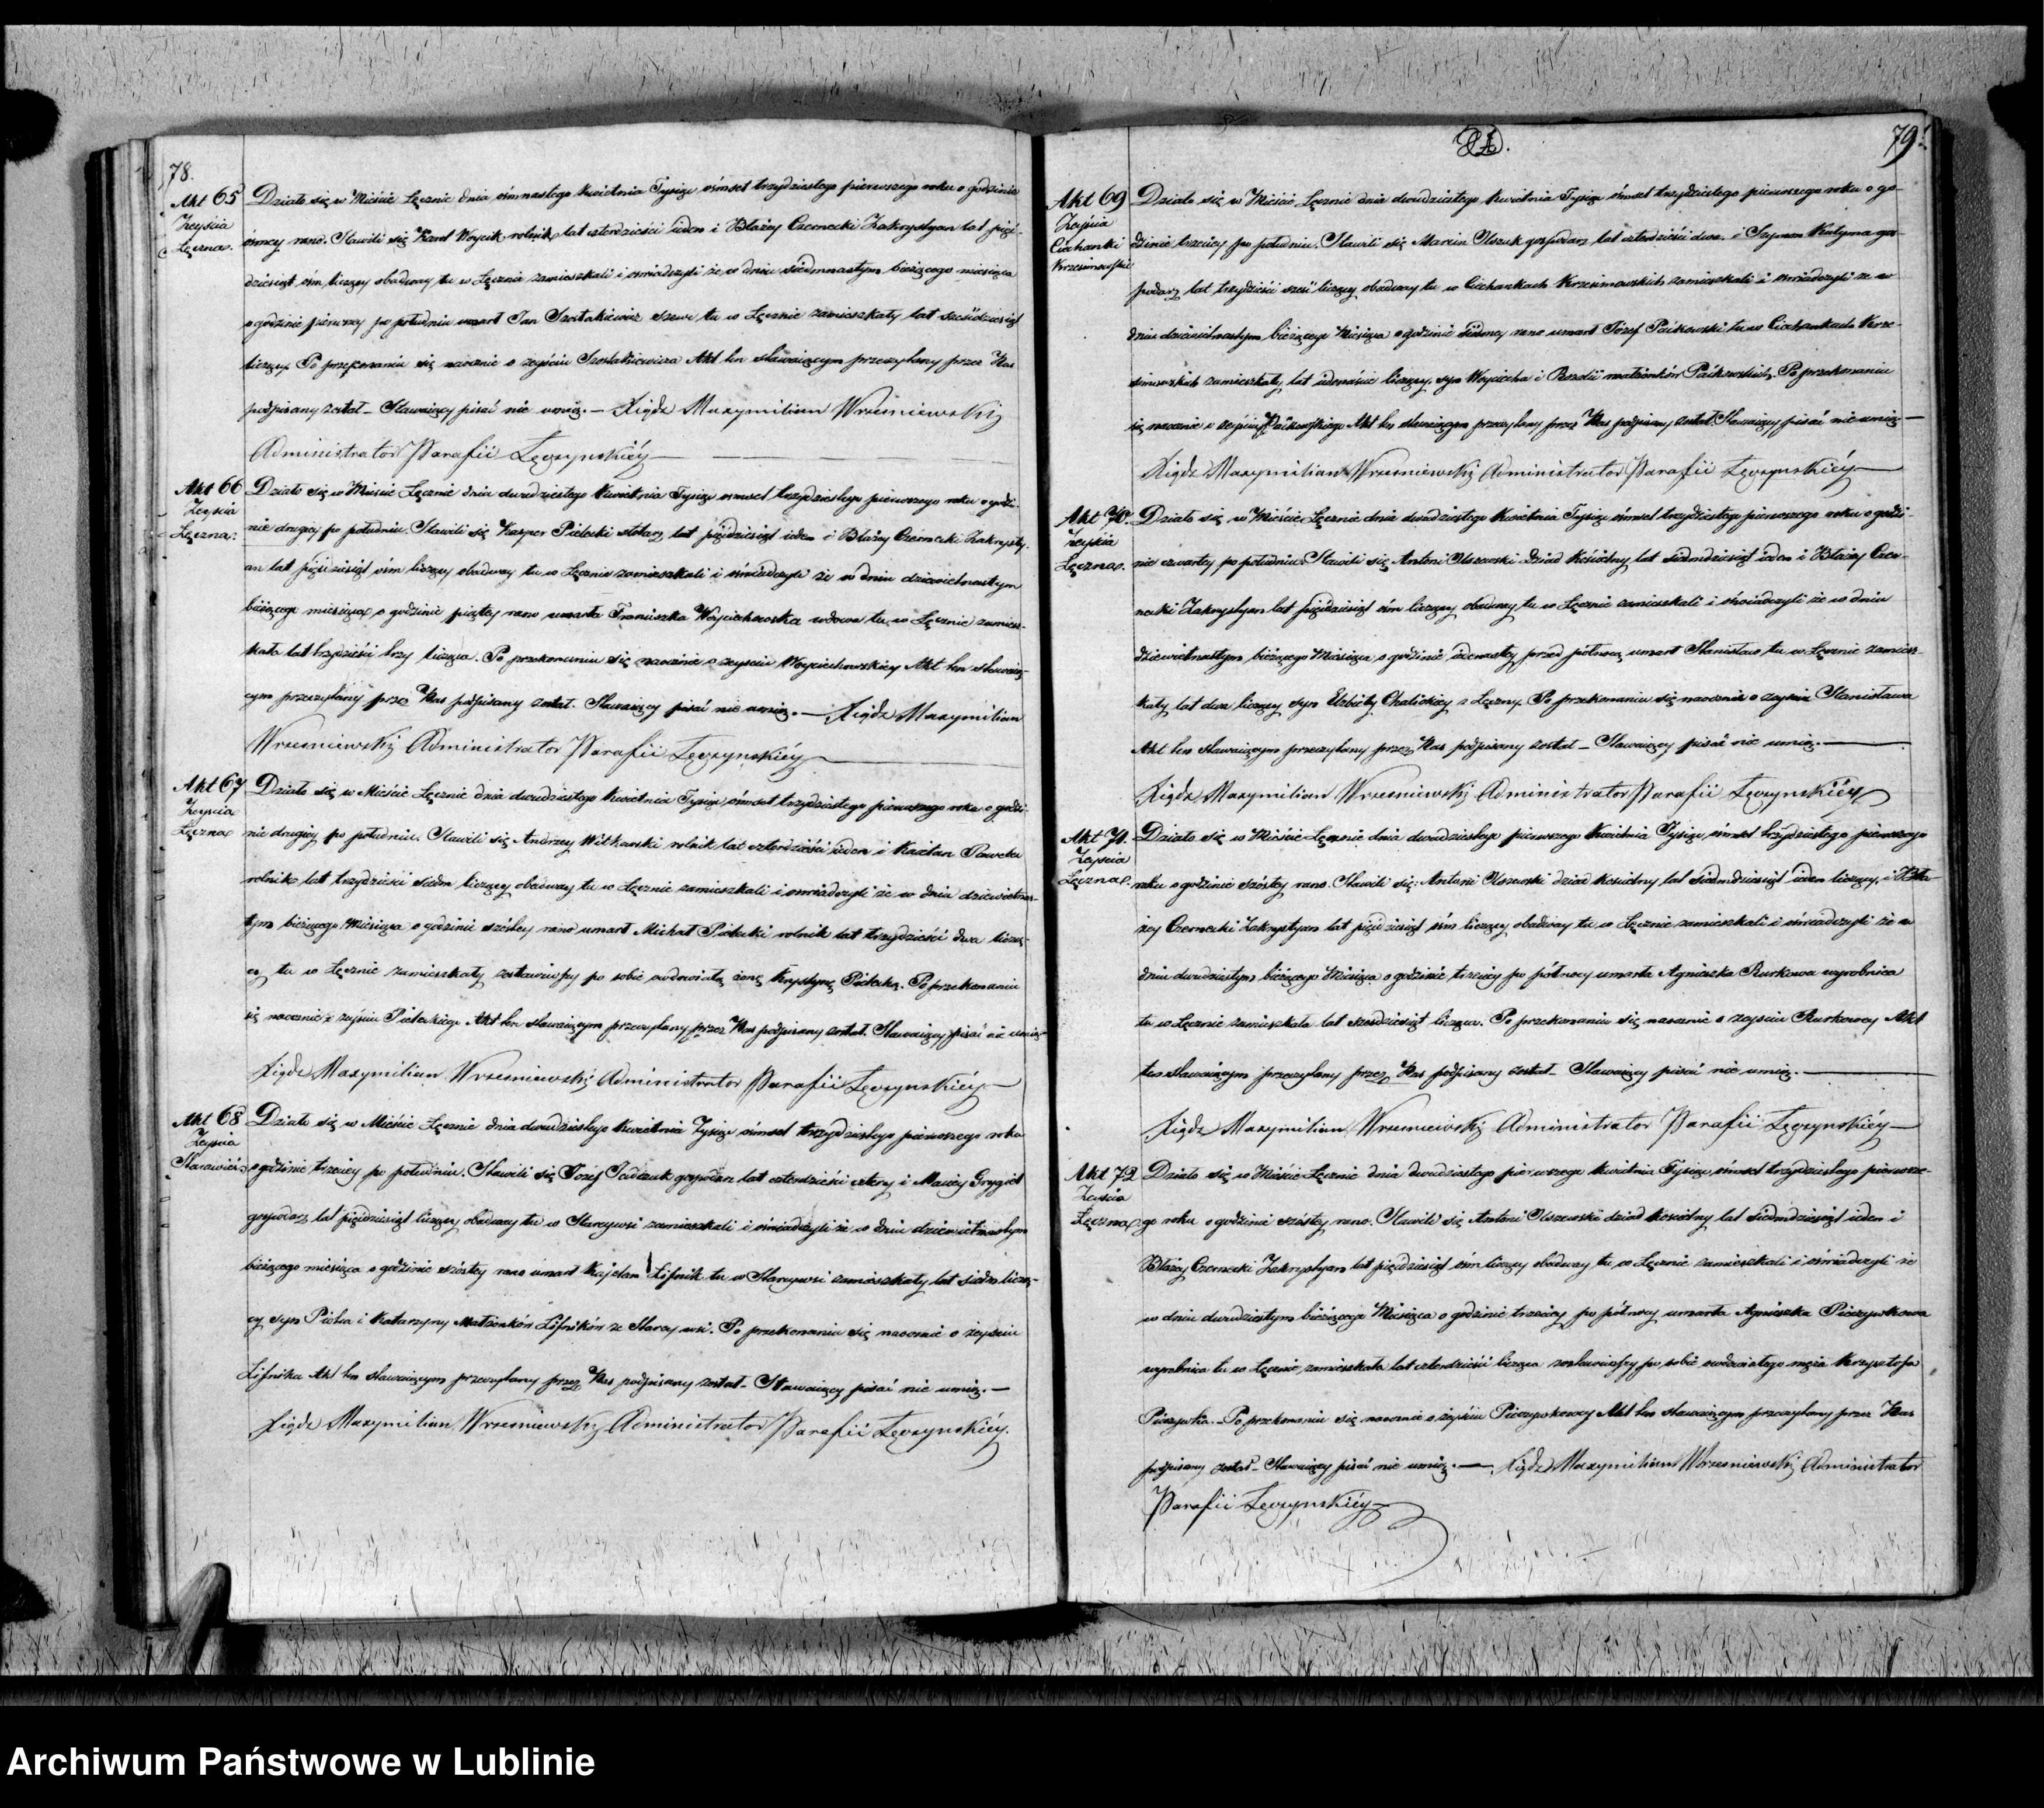 78.
Akt 65
Zeyścia
Łęczna.
Działo się w Mieście Łęcznie dnia ośmnastego Kwietnia Tysiąc ośmset trzydziestego pierwszego roku o godzinie
ósmey rano. Stawili się Karol Woycik rolnik lat czterdzieści ieden i Błażey Czernecki Zakrystyan lat pięć-
dziesiąt ośm liczący obadway tu w Łęcznie zamieszkali i oświadczyli że w dniu siedmnastym bieżącego miesiąca
o godzinie pierwszy po południu umarł Jan Szostakiewicz szewc tu w Łęcznie zamieszkały lat sześćdziesiąt
liczący. Po przekonaniu się naocznie o zeyściu Szostakiewicza Akt ten stawaiącym przeczytany przez Nas
podpisany został – Stawaiący pisać nie umią. – Xiądz Maxymilian Wrzesniewski
Administrator Parafii Łęczynskiéy
Akt 66
Zeyscia
Łęczna.
Działo się w Mieście Łęcznie dnia dwudziestego Kwietnia Tysiąc ośmset trzydziestego pierwszego roku o godzi-
nie drugiey po południu. Stawili się Kasper Pielecki stolarz lat pięćdziesiąt ieden i Błażey Czernecki Zakrysty-
an lat pięćdziesiąt ośm liczący obadway tu w Łęcznie zamieszkali i oświadczyli że w dniu dziewiętnastym
bieżącego miesiąca o godzinie piątey rano umarła Franciszka Woyciechowska wdowa tu w Łęcznie zamiesz-
kała lat trzydzieści trzy licząca. Po przekonaniu się naocznie o zeyściu Woyciechowskiey Akt ten stawaią-
cym przeczytany przez Nas podpisany został. Stawaiący pisać nie umią. – Xiądz Maxymilian
Wrzesniewski Administrator Parafii Łęczynskiéy
Akt 67
Zeyscia
Łęczna
Działo się w Mieście Łęcznie dnia dwudziestego Kwietnia Tysiąc ośmset trzydziestego pierwszego roku o godzi-
nie drugiey po południu. Stawili się Andrzey Witkowski rolnik lat czterdzieści ieden i Kaietan Pawelec
rolnik lat trzydzieści siedm liczący obadway tu w Łęcznie zamieszkali i oświadczyli że w dniu dziewiętnas-
tym bieżącego Miesiąca o godzinie szóstey rano umarł Michał Pielecki rolnik lat trzydzieści dwa liczą-
cy tu w Łęcznie zamieszkały zostawiwszy po sobie owdowiałą żonę Krystynę Pielecką. Po przekonaniu
się naocznie o zeyściu Pieleckiego Akt ten stawaiącym przeczytany przez Nas podpisany został. Stawaiący pisać nie umią –
Xiądz Maxymilian Wrzesniewski Administrator Parafii Łęczynskiéy
Akt 68
Zeyscia
Starawieś
Działo się w Mieście Łęcznie dnia dwudziestego Kwietnia Tysiąc ośmset trzydziestego pierwszego roku
o godzinie trzeciey po południu. Stawili się Jozef gospodarz lat czterdzieści cztery i Maciey Grygiel
gospodarz lat pięćdziesiąt liczący obadway tu w Stareywsi zamieszkali i oświadczyli że w dniu dziewiętnastym
bieżącego miesiąca o godzinie szóstey rano umarł Kajetan Lisnik tu w Stareywsi zamieszkały lat siedm liczą-
cy syn Piotra i Katarzyny Małżonków Lisników ze Starey wsi. Po przekonaniu się naocznie o zeyściu
Lisnika Akt ten stawaiącym przeczytany przez Nas podpisany został – Stawaiący pisać nie umią. –
Xiądz Maxymilian Wrzesniewski Administrator Parafii Łęczynskiéy.
79.
Akt 69
Zeyścia
Ciechanki
Krzesimowskie
Działo się w Mieście Łęcznie dnia dwudziestego Kwietnia Tysiąc ośmset trzydziestego pierwszego roku o go-
dzinie trzeciey po południu. Stawili się Marcin Olszuk gospodarz lat czterdzieści dwa i Szymon gos-
podarz lat trzydzieści sześć liczący obadway tu w Ciechankach Krzesimowskich zamieszkali i oświadczyli że w
dniu dziewiętnastym bieżącego Miesiąca o godzinie siódmey rano umarł Józef Paikowski tu w Ciechankach Krze-
simowskich zamieszkały, lat iedenaście liczący, syn Woyciecha i Rozalii małżonków Paikowskich. Po przekonaniu
się naocznie o zeyściu Paikowskiego Akt ten stawaiącym przeczytany przez Nas podpisany został. Stawaiący pisać nie umią –
Xiądz Maxymilian Wrzesniewski Administrator Parafii Łęczynskiéy
Akt 70.
Zeyścia
Łęczna.
Działo się w Mieście Łęcznie dnia dwudziestego Kwietnia Tysiąc ośmset trzydziestego pierwszego roku o godzi-
nie czwartey po południu. Stawili się Antoni Olszewski Dziad Kościelny lat siedmdziesiąt ieden i Błażey Czer-
necki Zakrystyan lat pięćdziesiąt ośm liczący obadway tu w Łęcznie zamieszkali i oświadczyli że w dniu
dziewiętnastym bieżącego Miesiąca o godzinie iedenastey przed północą umarł Stanisław tu w Łęcznie zamiesz-
kały lat dwa liczący syn Elżbiety Chalickiey z Łęczny. Po przekonaniu się naocznie o zeyściu Stanisława
Akt ten stawaiącym przeczytany przez Nas podpisany został – Stawaiący pisać nie umią. –
Xiądz Maxymilian Wrzesniewski Administrator Parafii Łęczynskiéy
Akt 71.
Zeyscia
Łęczna.
Działo się w Mieście Łęcznie dnia dwudziestego pierwszego Kwietnia Tysiąc ośmset trzydziestego pierwszego
roku o godzinie szóstey rano. Stawili się: Antoni Olszewski dziad kościelny lat siedmdziesiąt ieden liczący, i Bła-
żey Czernecki Zakrystyan lat pięćdziesiąt ośm liczący obadway tu w Łęcznie zamieszkali i oświadczyli że w
dniu dwudziestym bieżącego Miesiąca o godzinie trzeciey po północy umarła Agnieszka Rurkowa wyrobnica
tu w Łęcznie zamieszkała lat sześćdziesiąt licząca. Po przekonaniu się naocznie o zeyściu Rurkowey Akt
ten stawaiącym przeczytany przez Nas podpisany został – Stawaiący pisać nie umią. –
Xiądz Maxymilian Wrzesniewski Administrator Parafii Łęczynskiéy
Akt 72
Zeyścia
Łęczna
Działo się w Mieście Łęcznie dnia dwudziestego pierwszego Kwietnia Tysiąc ośmset trzydziestego pierwsze-
go roku o godzinie szóstey rano. Stawili się Antoni Olszewski dziad kościelny lat siedmdziesiąt ieden i
Błażey Czernecki Zakrystyan lat pięćdziesiąt ośm liczący obadway tu w Łęcznie zamieszkali i oświadczyli że
w dniu dwudziestym bieżącego Miesiąca o godzinie trzeciey po północy umarła Agnieszka Pieczywkowa
wyrobnica tu w Łęcznie zamieszkała lat czterdzieści licząca zostawiwszy po sobie owdowiałego męża Krzysztofa
Pieczywka. – Po przekonaniu się naocznie o zeyściu Pieczywkowey Akt ten stawaiącym przeczytany przez Nas
podpisany został – Stawaiący pisać nie umią. – Xiądz Maxymilian Wrzesniewski Administrator
Parafii Łęczynskiéy
Archiwum Państwowe w Lublinie